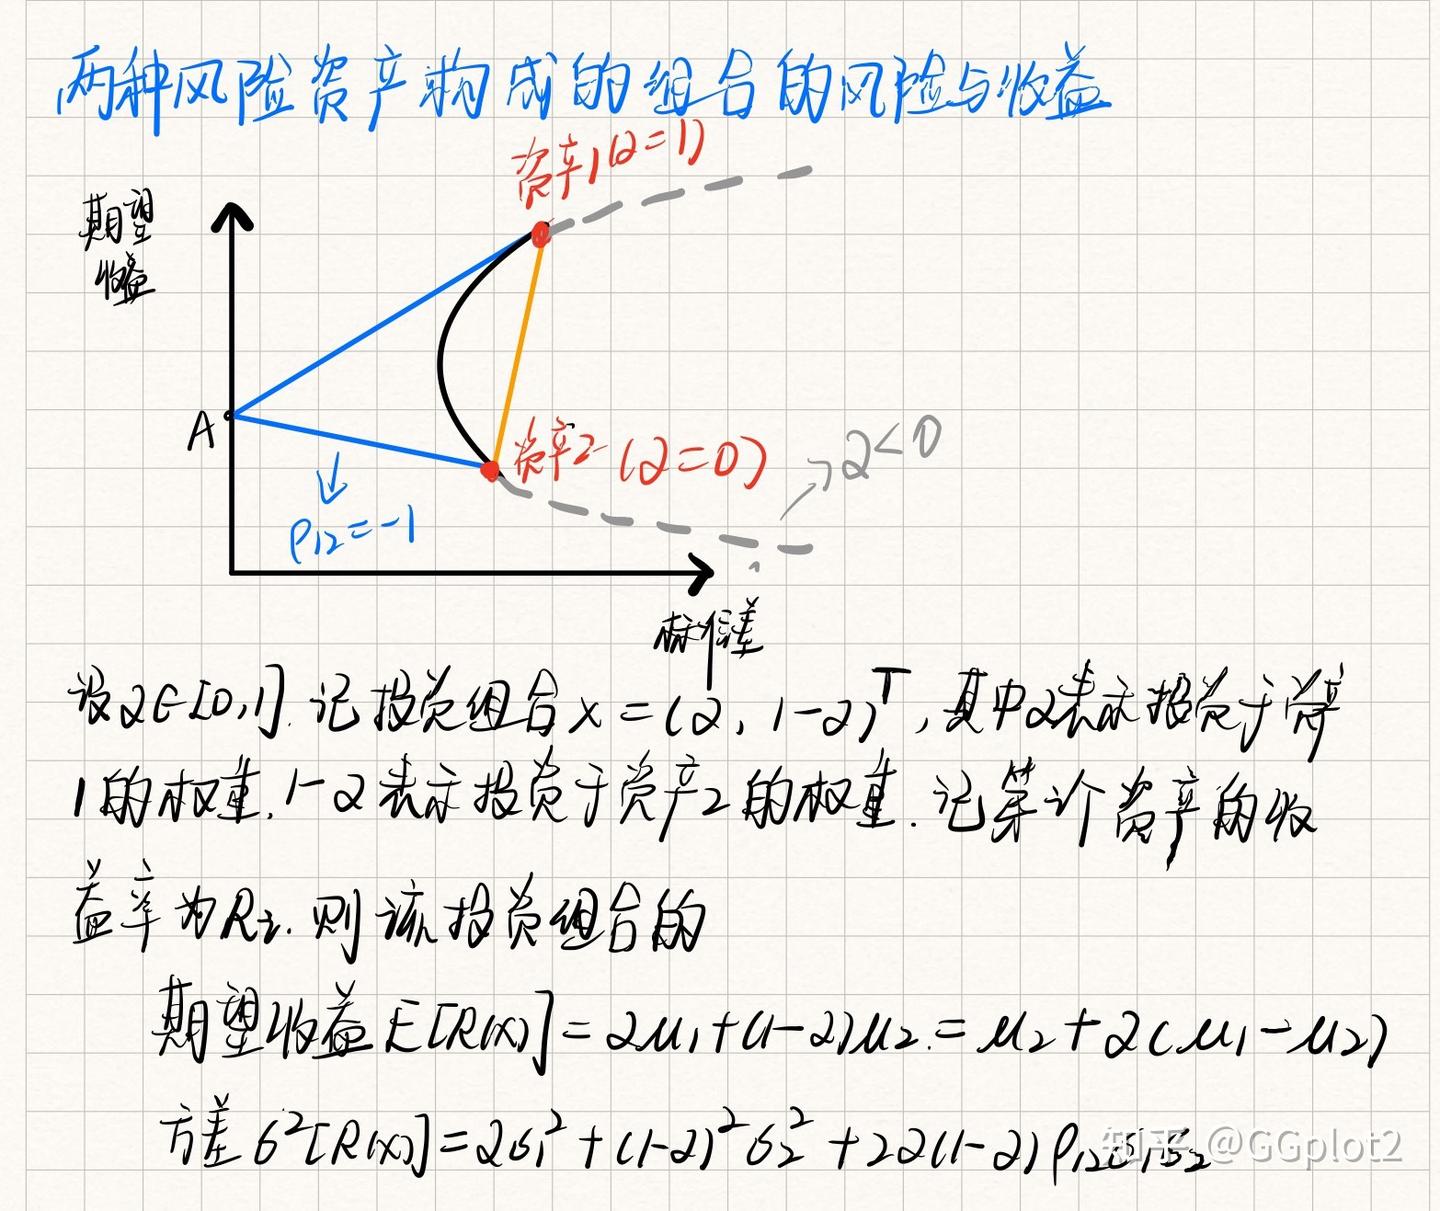 两种风险资产构成的组合的风险与收益
资产1(α=1)
期望
收益
A
资产2(α=0)
α<0
ρ₁₂=-1
标准差
设α∈[0,1]. 记投资组合x=(α, 1-α)ᵀ, 其中α表示投资于资产
1的权重, 1-α表示投资于资产2的权重. 记第i个资产的收
益率为Rᵢ. 则该投资组合的
期望收益E[R(x)]=αμ₁+(1-α)μ₂=μ₂+α(μ₁-μ₂)
方差σ²[R(x)]=ασ₁²+(1-α)²σ₂²+2α(1-α)ρ₁₂σ₁σ₂
知乎 @GGplot2